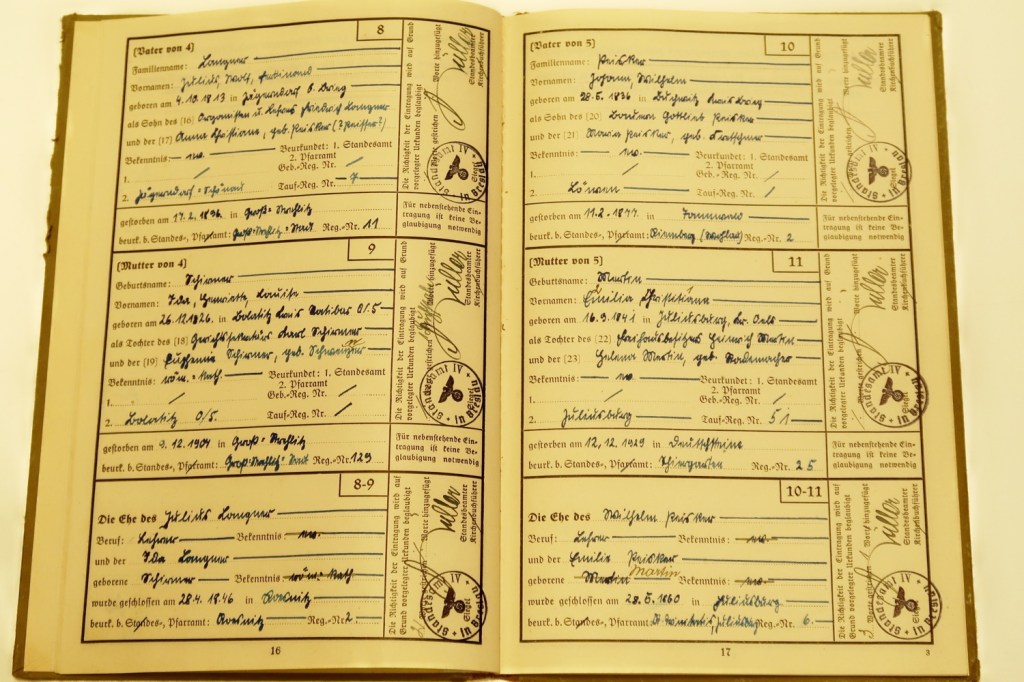 8
(Vater von 4)
Familienname: Langner
Vornamen: Julius, Adolf, Ferdinand
geboren am 4.10.1813 in Jägerndorf b. Brieg
als Sohn des (16) Organisten u. Lehrers Friedrich Langner
und der (17) Anna Christiane, geb. Peisker
Bekenntnis: ev. Beurkundet: 1. Standesamt
2. Pfarramt
1. Geb.-Reg. Nr.
2. Jägerndorf-Schönau Tauf-Reg. Nr. 7
gestorben am 17.2.1896 in Groß-Strehlitz
beurk. b. Standes-, Pfarramt: Groß-Strehlitz-Stadt Reg.-Nr. 11
Die Richtigkeit der Eintragung wird auf Grund
vorgelegter Urkunden beglaubigt
Worte gestrichen Worte hinzugefügt
Siegel
Standesbeamter
Kirchenbuchführer
Standesamt VI in Breslau
Für nebenstehende Ein-
tragung ist keine Be-
glaubigung notwendig
9
(Mutter von 4)
Geburtsname: Schirmer
Vornamen: Ida, Henriette, Louise
geboren am 26.12.1826. in Bolatitz Kreis Ratibor O/S
als Tochter des (18) Karl Schirmer
und der (19) Eugenie Schirmer, geb.
Bekenntnis: röm.-kath. Beurkundet: 1. Standesamt
2. Pfarramt
1. Geb.-Reg. Nr.
2. Bolatitz O/S. Tauf-Reg. Nr.
gestorben am 9.12.1904 in Groß-Strehlitz
beurk. b. Standes-, Pfarramt: Groß-Strehlitz-Stadt Reg.-Nr. 129
Die Richtigkeit der Eintragung wird auf Grund
vorgelegter Urkunden beglaubigt
Worte gestrichen Worte hinzugefügt
Siegel
Standesbeamter
Kirchenbuchführer
Standesamt VI in Breslau
Für nebenstehende Ein-
tragung ist keine Be-
glaubigung notwendig
8-9
Die Ehe des Julius Langner
Beruf: Lehrer Bekenntnis: ev.
und der Ida Langner
geborene Schirmer Bekenntnis: röm.-kath.
wurde geschlossen am 28.4.1846 in Kresnitz
beurk. b. Standes-, Pfarramt: Kresnitz Reg. Nr. 2
Die Richtigkeit der Eintragung wird auf
Grund vorgelegter Urkunden beglaubigt
Worte gestrichen Worte hinzugefügt
Siegel
Standesbeamter
Kirchenbuchführer
Standesamt VI in Breslau
16
10
(Vater von 5)
Familienname: Peisker
Vornamen: Johann, Wilhelm
geboren am 28.5.1836 in Kreis Brieg
als Sohn des (20) Gottlieb Peisker
und der (21) Maria Peisker, geb.
Bekenntnis: ev. Beurkundet: 1. Standesamt
2. Pfarramt
1. Geb.-Reg. Nr.
2. Löwen Tauf-Reg. Nr.
gestorben am 11.2.1877 in Tannwald
beurk. b. Standes-, Pfarramt: Reg.-Nr. 2
Die Richtigkeit der Eintragung wird auf Grund
vorgelegter Urkunden beglaubigt
Worte gestrichen Worte hinzugefügt
Siegel
Standesbeamter
Kirchenbuchführer
Standesamt VI in Breslau
Für nebenstehende Ein-
tragung ist keine Be-
glaubigung notwendig
11
(Mutter von 5)
Geburtsname: Martin
Vornamen: Emilia Christiana
geboren am 16.9.1841 in Juliusburg, Kr. Oels
als Tochter des (22) Heinrich Martin
und der (23) Helena Martin, geb. Rademacher
Bekenntnis: ev. Beurkundet: 1. Standesamt
2. Pfarramt
1. Geb.-Reg. Nr.
2. Juliusburg Tauf-Reg. Nr. 51
gestorben am 12.12.1929 in Deutschsteine
beurk. b. Standes-, Pfarramt: Reg.-Nr. 25
Die Richtigkeit der Eintragung wird auf Grund
vorgelegter Urkunden beglaubigt
Worte gestrichen Worte hinzugefügt
Siegel
Standesbeamter
Kirchenbuchführer
Standesamt VI in Breslau
Für nebenstehende Ein-
tragung ist keine Be-
glaubigung notwendig
10-11
Die Ehe des Wilhelm Peisker
Beruf: Lehrer Bekenntnis: ev.
und der Emilie Peisker
geborene Martin Martin Bekenntnis: ev.
wurde geschlossen am 28.5.1860 in Juliusburg
beurk. b. Standes-, Pfarramt: Juliusburg Reg. Nr. 6.
Die Richtigkeit der Eintragung wird auf
Grund vorgelegter Urkunden beglaubigt
3 Worte gestrichen 1 Worte hinzugefügt
Siegel
Standesbeamter
Kirchenbuchführer
Standesamt VI in Breslau
17
3